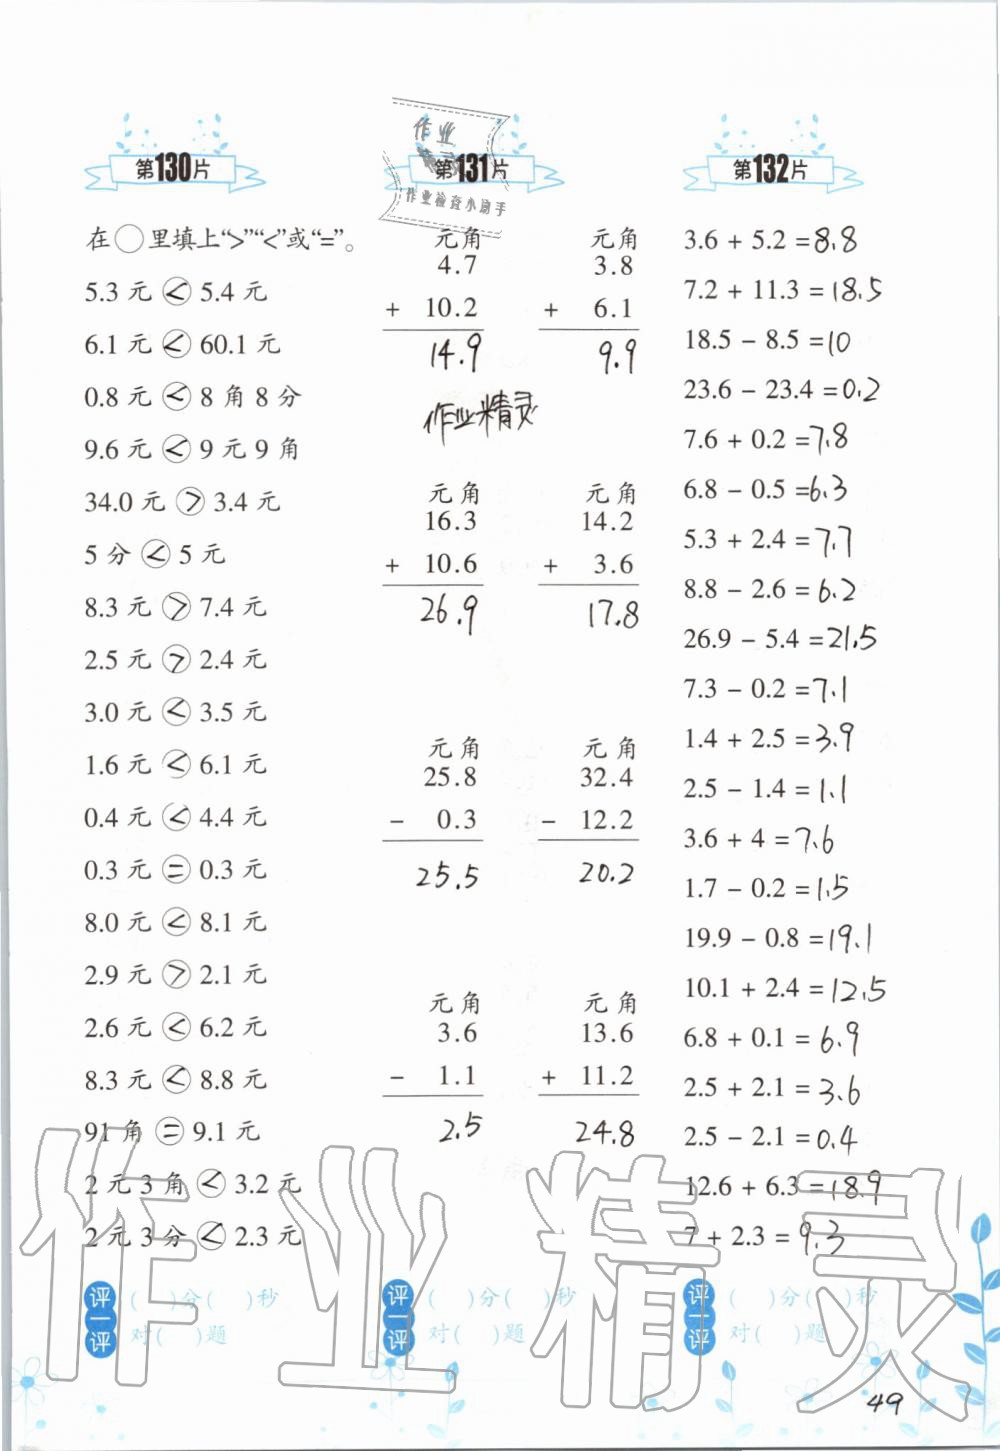 作业
作业检查小助手
第130片
在○里填上“>”“<”或“=”。
5.3元<5.4元
6.1元<60.1元
0.8元<8角8分
9.6元<9元9角
34.0元>3.4元
5分<5元
8.3元>7.4元
2.5元>2.4元
3.0元<3.5元
1.6元<6.1元
0.4元<4.4元
0.3元=0.3元
8.0元<8.1元
2.9元>2.1元
2.6元<6.2元
8.3元<8.8元
91角=9.1元
2元3角<3.2元
2元3分<2.3元
评一评
( )分( )秒
对( )题
第131片
元角 元角
4.7 3.8
+ 10.2 + 6.1
14.9 9.9
作业精灵
元角 元角
16.3 14.2
+ 10.6 + 3.6
26.9 17.8
元角 元角
25.8 32.4
- 0.3 - 12.2
25.5 20.2
元角 元角
3.6 13.6
- 1.1 + 11.2
2.5 24.8
评一评
( )分( )秒
对( )题
第132片
3.6 + 5.2 = 8.8
7.2 + 11.3 = 18.5
18.5 - 8.5 = 10
23.6 - 23.4 = 0.2
7.6 + 0.2 = 7.8
6.8 - 0.5 = 6.3
5.3 + 2.4 = 7.7
8.8 - 2.6 = 6.2
26.9 - 5.4 = 21.5
7.3 - 0.2 = 7.1
1.4 + 2.5 = 3.9
2.5 - 1.4 = 1.1
3.6 + 4 = 7.6
1.7 - 0.2 = 1.5
19.9 - 0.8 = 19.1
10.1 + 2.4 = 12.5
6.8 + 0.1 = 6.9
2.5 + 2.1 = 3.6
2.5 - 2.1 = 0.4
12.6 + 6.3 = 18.9
7 + 2.3 = 9.3
评一评
( )分( )秒
对( )题
作业精灵
49